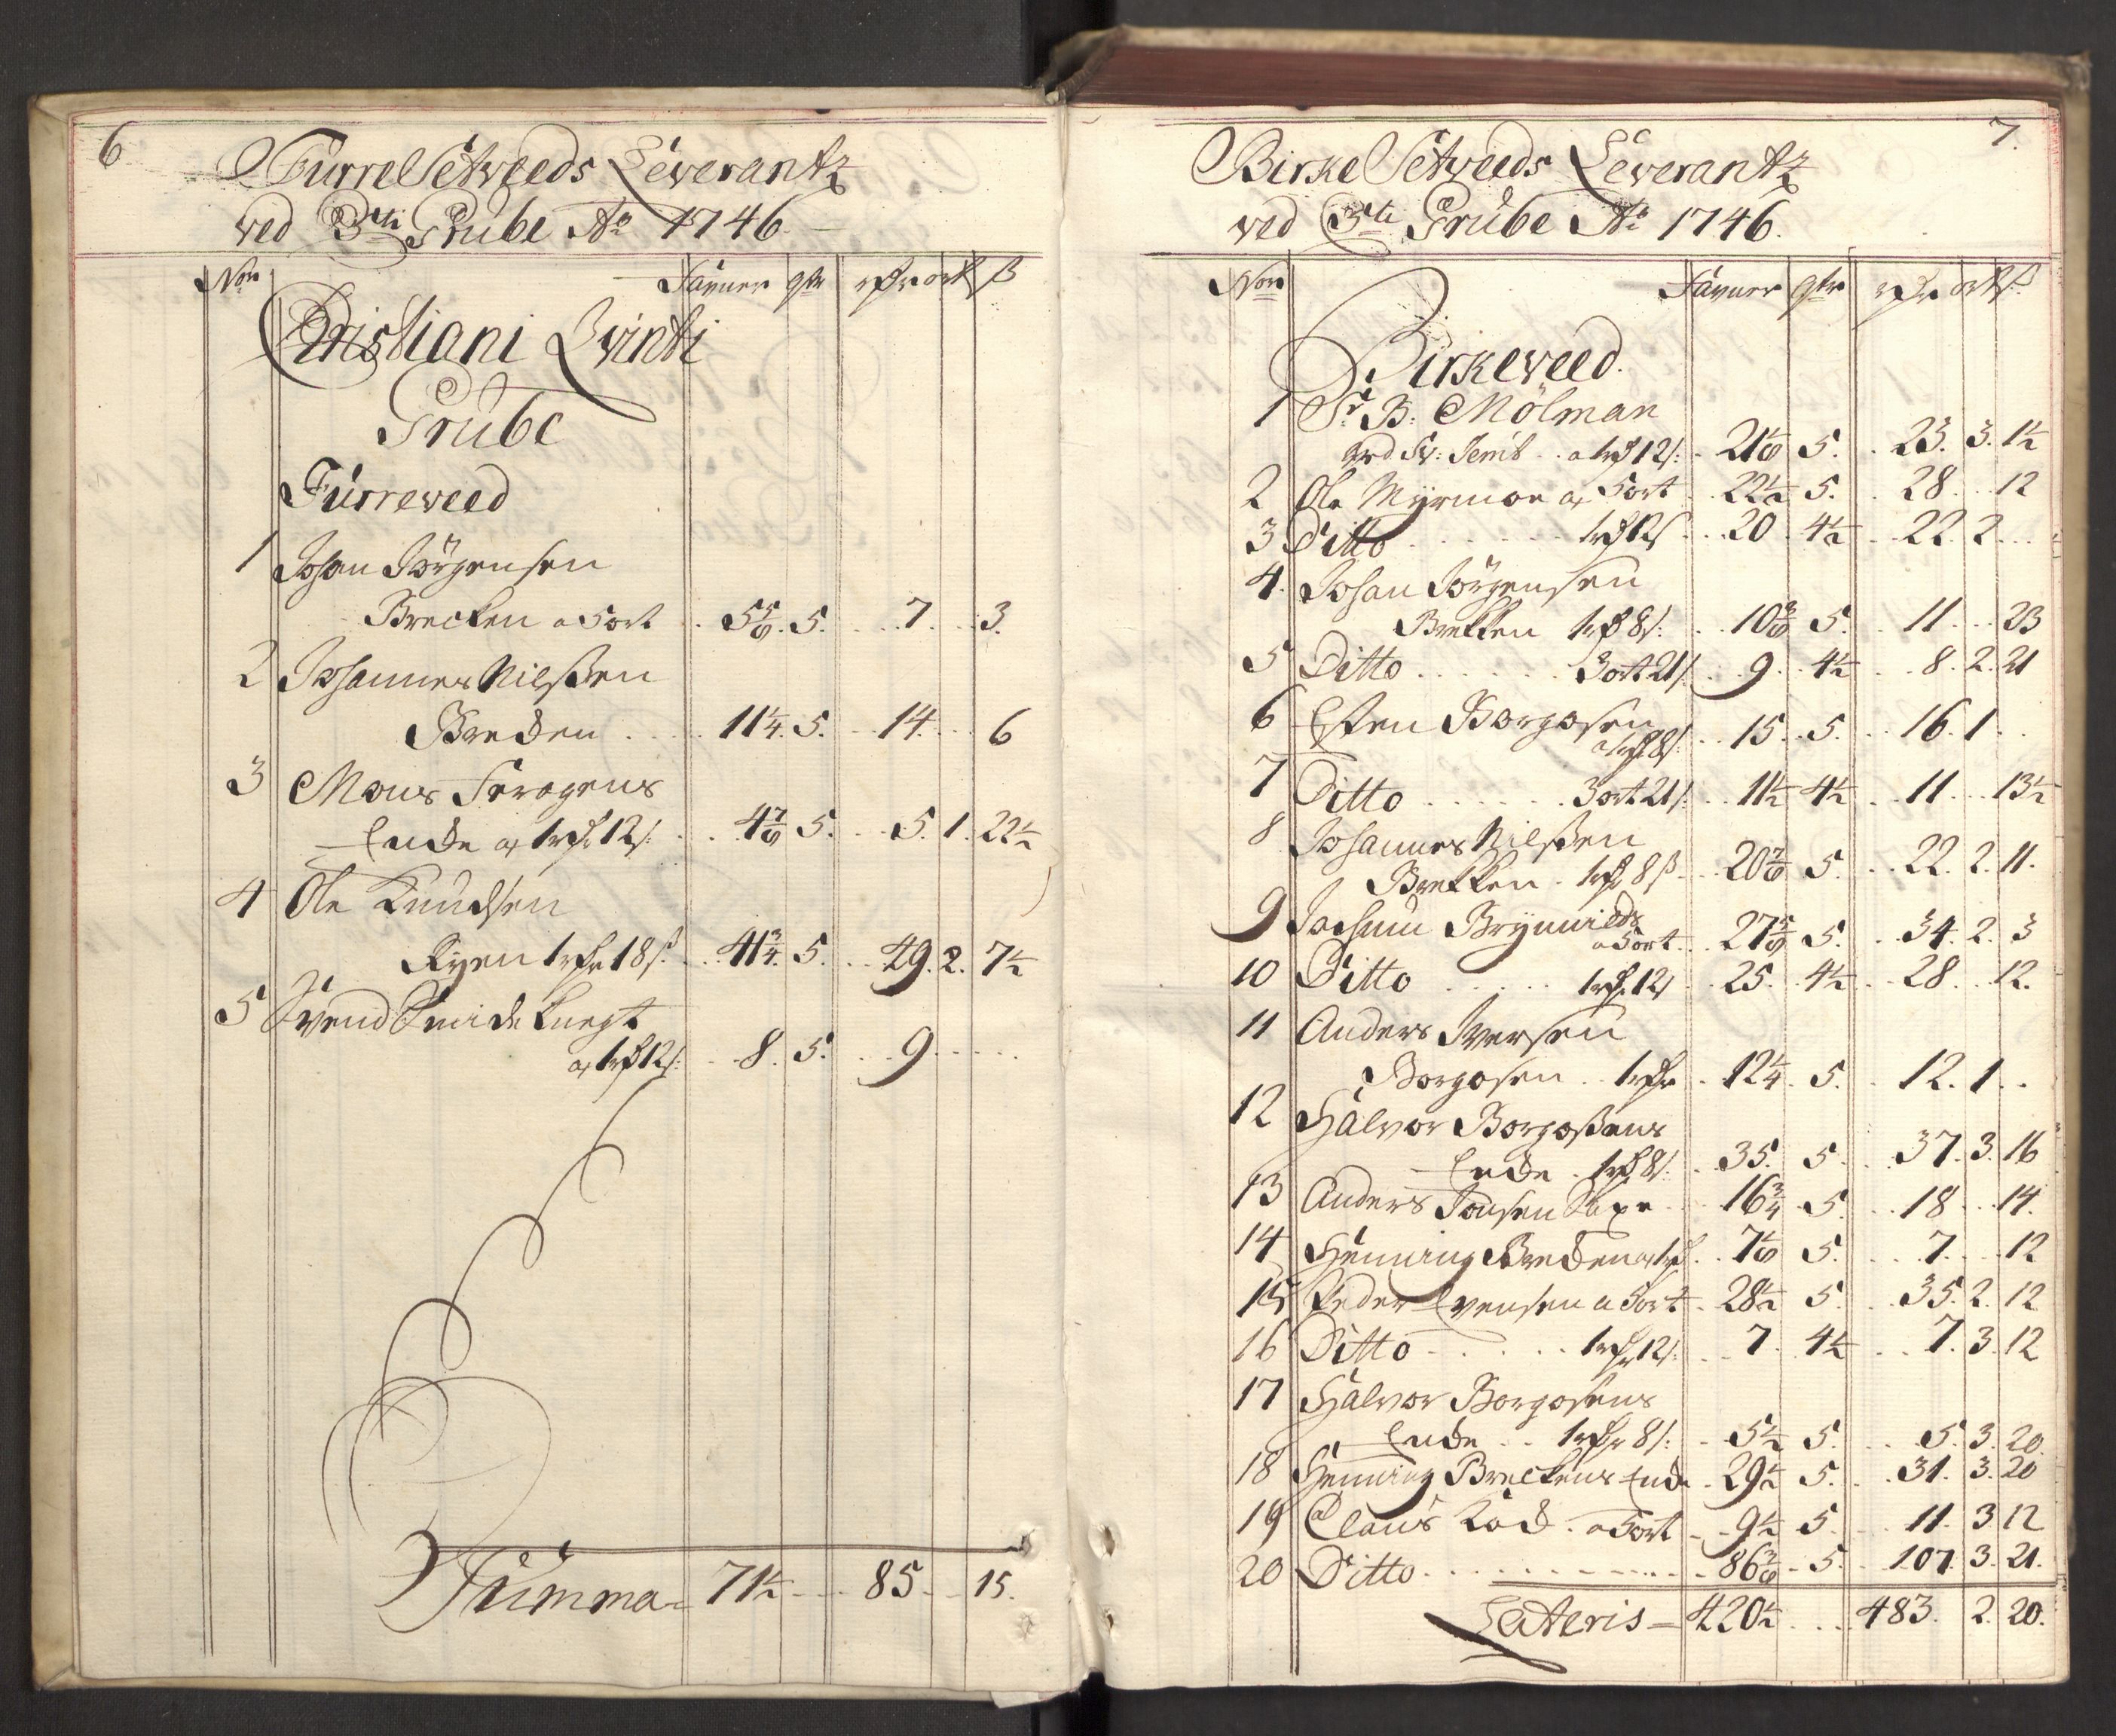 6
FurreSetweeds Leverantz
ved 5te Grube Ao 1746
Nor Favner qtr rdr ort ß
Christiani Qvinti
Grube
Furreveed
1 Johan Jörgensen
Brecken a 5 ort 5 5/8 5. 7. 3.
2 Johannes Nilssen
Breden 11 1/4 5. 14. 6
3 Mons Feragens
Encke a 1 rdr 12 s: 4 7/8 5. 5. 1. 22 1/2
4 Ole Knudsen
Ryen 1 rdr 18 ß 41 3/4 5. 49. 2. 7 1/2
5 Svend Smideknegt
a 1 rd 12 s: 8. 5. 9
Summa 71 1/2 85 15.
7.
Birke Setweeds Leverantz
ved 5te Grube Ao 1746.
Nor Favner qtr rdr ort ß
Birkeveed.
1 Sr. B: Mölman
a 1 rd 12 s: 21 1/8 5. 23. 3. 1 1/2
2 Ole Myrmoe a 5 ort 22 1/2 5. 28 12
3 Ditto 1 rd 12 s 20 4 1/2 22. 2
4. Johan Jörgensen
Brekken 1 rd 8 s: 10 3/8 5. 11 23
5 Ditto 3 ort 21 s. 9. 4 1/2 8. 2. 21
6 Esten Borgosen
a 1 rd 8 s: 15. 5. 16. 1
7 Ditto 3 ort 21 s: 11 1/2 4 1/2 11 13 1/2
8 Johannes Nilssen
Brekken 1 rd 8 ß 20 7/8 5. 22. 2. 11.
9 Jochum Brynnilds
a 5 ort 27 5/8 5. 34. 2. 3
10 Ditto 1 rdr 12 s 25. 4 1/2 28 12.
11 Anders Iversen
Borgosen 1 rdr 12 1/4 5. 12. 1
12 Halvor Borgosens
Encke 1 rd 8 s: 35. 5 37. 3. 16
13 Anders Jonsen Saxe 16 3/4 5. 18 14.
14 Henning Breden a 1 rd 7 1/8 5. 7. 12
15 Peder Evensen a 5 ort 28 1/2 5. 35. 2. 12
16 Ditto 1 rdr 12 s: 7. 4 1/2 7. 3. 12
17 Halvor Borgosens
Encke 1 rdr 8 s: 5 1/2 5. 5. 3. 20.
18 Henning Breckens Encke 29 1/2 5. 31. 3. 20
19 Claus Köd a 5 ort 9 1/2 5 11. 3 12
20 Ditto 86 3/8 5. 107. 3. 21.
Lateris 420 1/2 483. 2. 20.